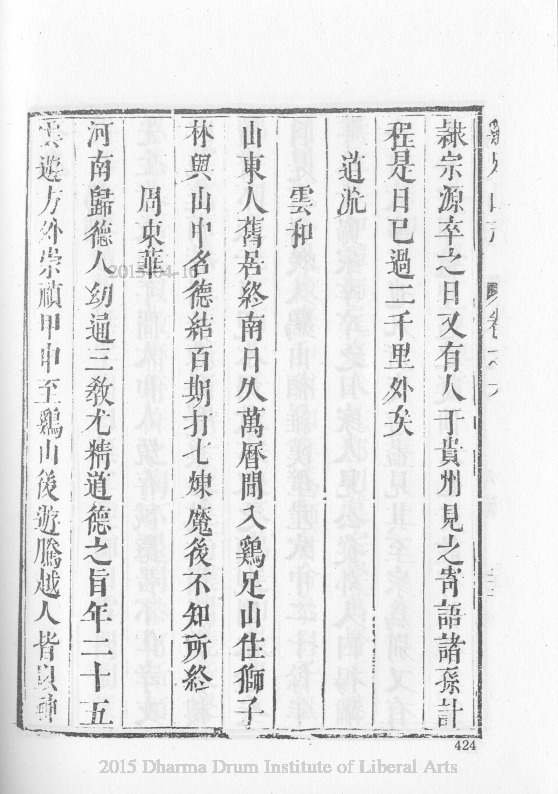 隸宗源卒之日又有人于貴州見之寄語諸孫計
程是日已過二千里外矣
道流
雲和
山東人舊居終南日久萬曆間入鷄足山住獅子
林與山中名德結百期打七煉魔後不知所終
周東華
河南歸德人幼通三敎尤精道德之旨年二十五
雲遊方外崇禎甲申至鷄山後遊騰越人皆以神
424
2015-04-16
2015 Dharma Drum Institute of Liberal Arts